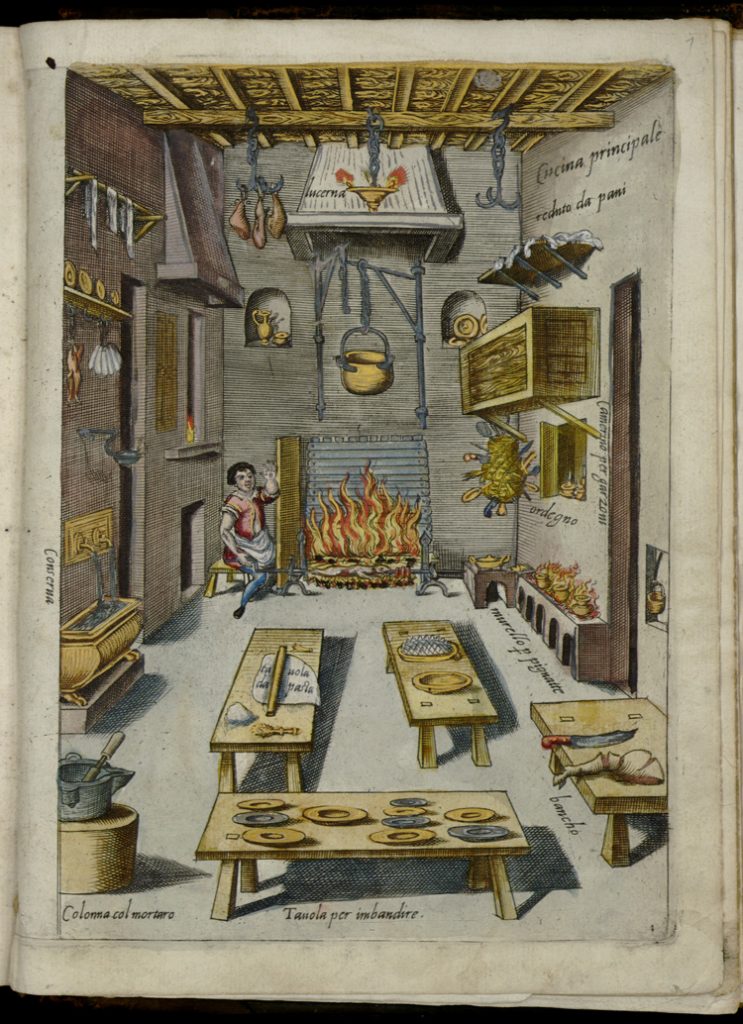 7
Cucina principale
reduto da pani
lucerna
Camerino per garzoni
ordegno
Conserua
murello p pignatte
tauola
da pasta
bancho
Colonna col mortaro
Tauola per imbandire.